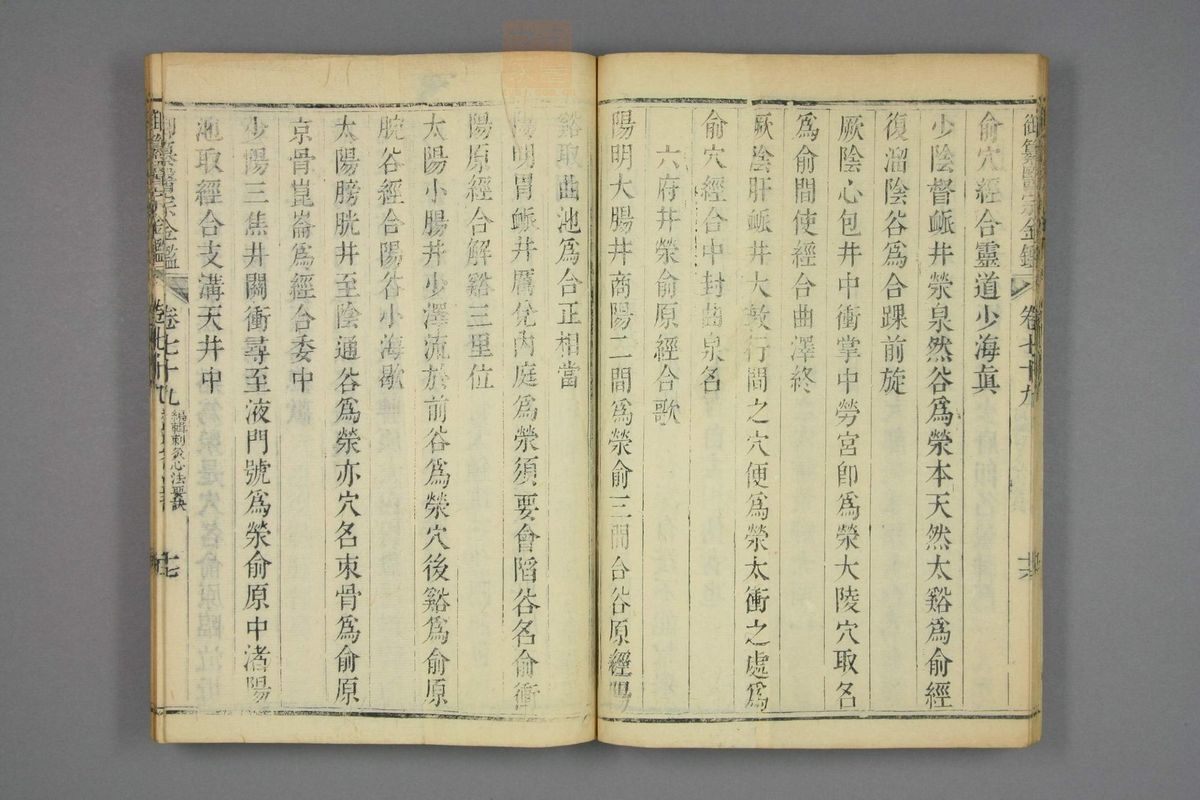 御纂醫宗金鑑
卷七十九
俞穴經合靈道少海眞
少陰督䘑井滎泉然谷爲滎本天然太谿爲俞經
復溜陰谷爲合踝前旋
厥陰心包井中衝掌中勞宮卽爲滎大陵穴取名
爲俞間使經合曲澤終
厥陰肝䘑井大敦行間之穴便爲滎太衝之處爲
俞穴經合中封曲泉名
六府井滎俞原經合歌
陽明大腸井商陽二間爲滎俞三間合谷原經陽
谿取曲池爲合正相當
陽明胃䘑井厲兌內庭爲滎須要會陷谷名俞衝
陽原經合解谿三里位
太陽小腸井少澤流於前谷爲滎穴後谿爲俞原
腕谷經合陽谷小海歇
太陽膀胱井至陰通谷爲滎亦穴名束骨爲俞原
京骨崑崙爲經合委中
少陽三焦井關衝尋至液門號爲滎俞原中渚陽
池取經合支溝天井中
御纂醫宗金鑑
卷七十九
編輯刺灸心法要訣
十七